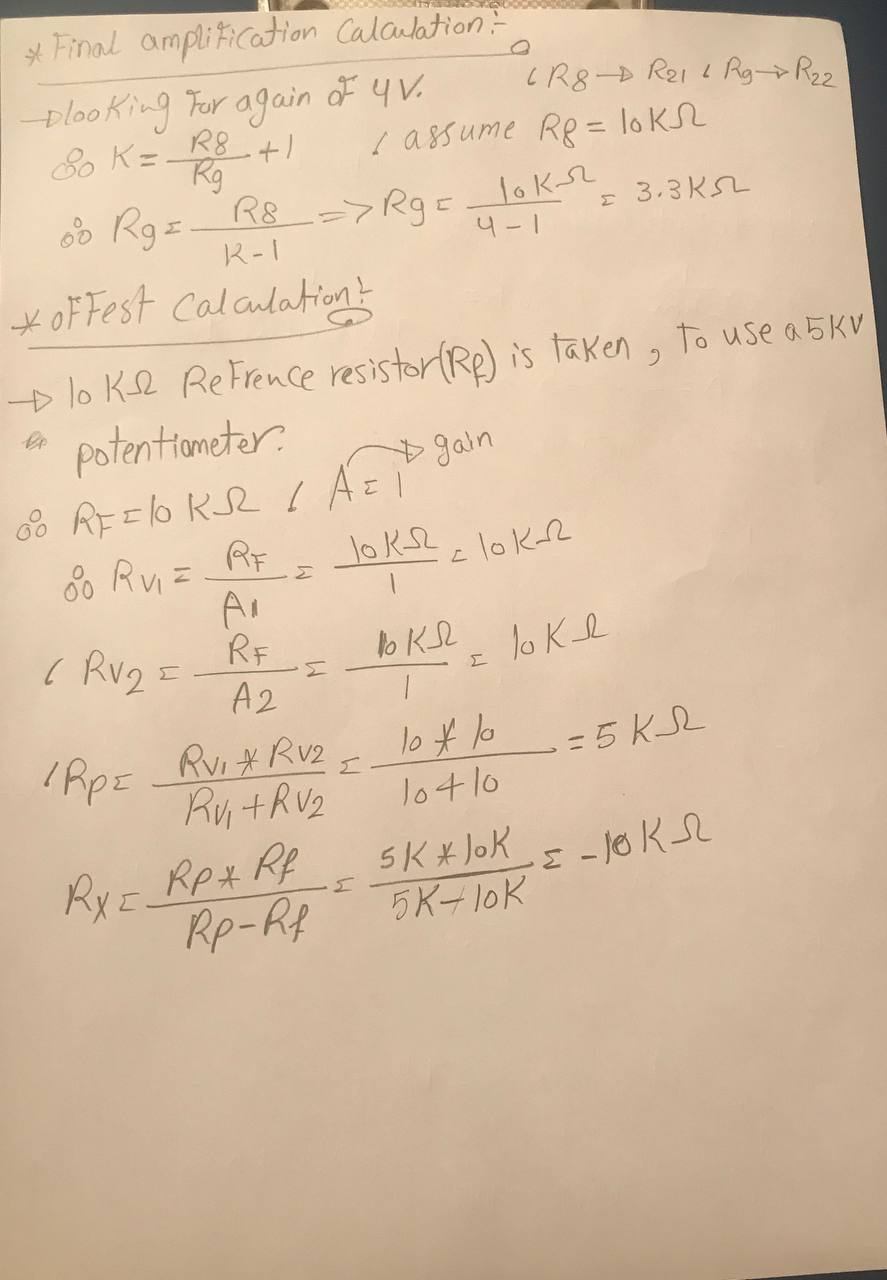 * Final amplification Calculation:-
→ looking For again of 4V. , R8 → R21 , Rg → R22
∴ K = R8/Rg + 1 , assume R8 = 10KΩ
∴ Rg = R8/K-1 => Rg = 10KΩ/4-1 = 3.3KΩ
* oFFest Calculation:
→ 10 KΩ ReFrence resistor(Rf) is taken, To use a 5KV
potentiometer.
∴ RF = 10 KΩ , A = 1 → gain
∴ RV1 = RF/A1 = 10KΩ/1 = 10KΩ
, RV2 = RF/A2 = 10KΩ/1 = 10KΩ
, Rp = RV1 * RV2/RV1 + RV2 = 10 * 10/10 + 10 = 5 KΩ
Rx = Rp * Rf/Rp - Rf = 5K * 10K/5K - 10K = -10KΩ